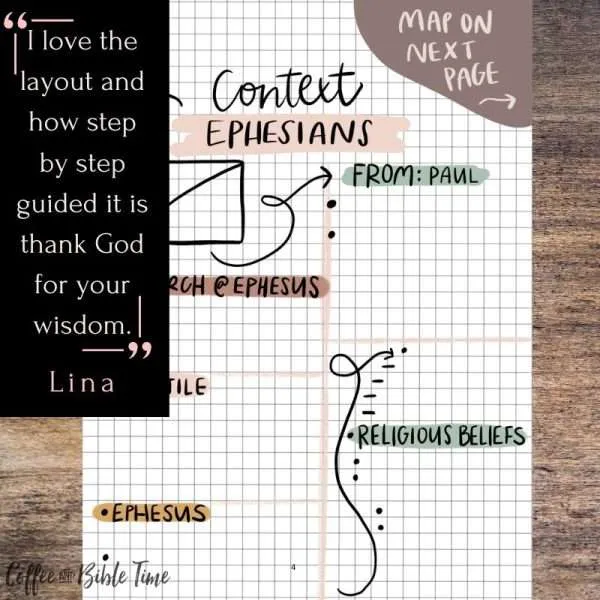 “
I love the
layout and
how step
by step
guided it is
thank God
for your
wisdom.
”
Lina
MAP ON
NEXT
PAGE
Context
EPHESIANS
FROM: PAUL
RCH @ EPHESUS
TILE
• RELIGIOUS BELIEFS
• EPHESUS
4
Coffee AND Bible Time